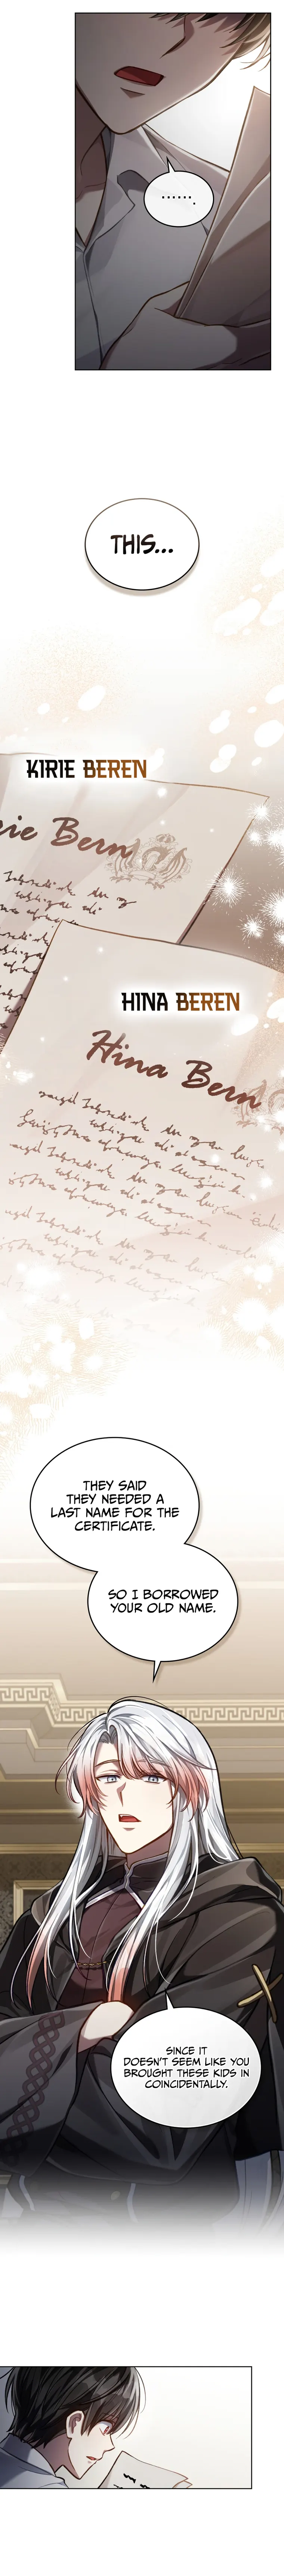 .......
THIS...
KIRIE BEREN
rie Bern
HINA BEREN
Hina Bern
THEY SAID
THEY NEEDED A
LAST NAME FOR THE
CERTIFICATE.
SO I BORROWED
YOUR OLD NAME.
SINCE IT
DOESN'T SEEM LIKE YOU
BROUGHT THESE KIDS IN
COINCIDENTALLY.